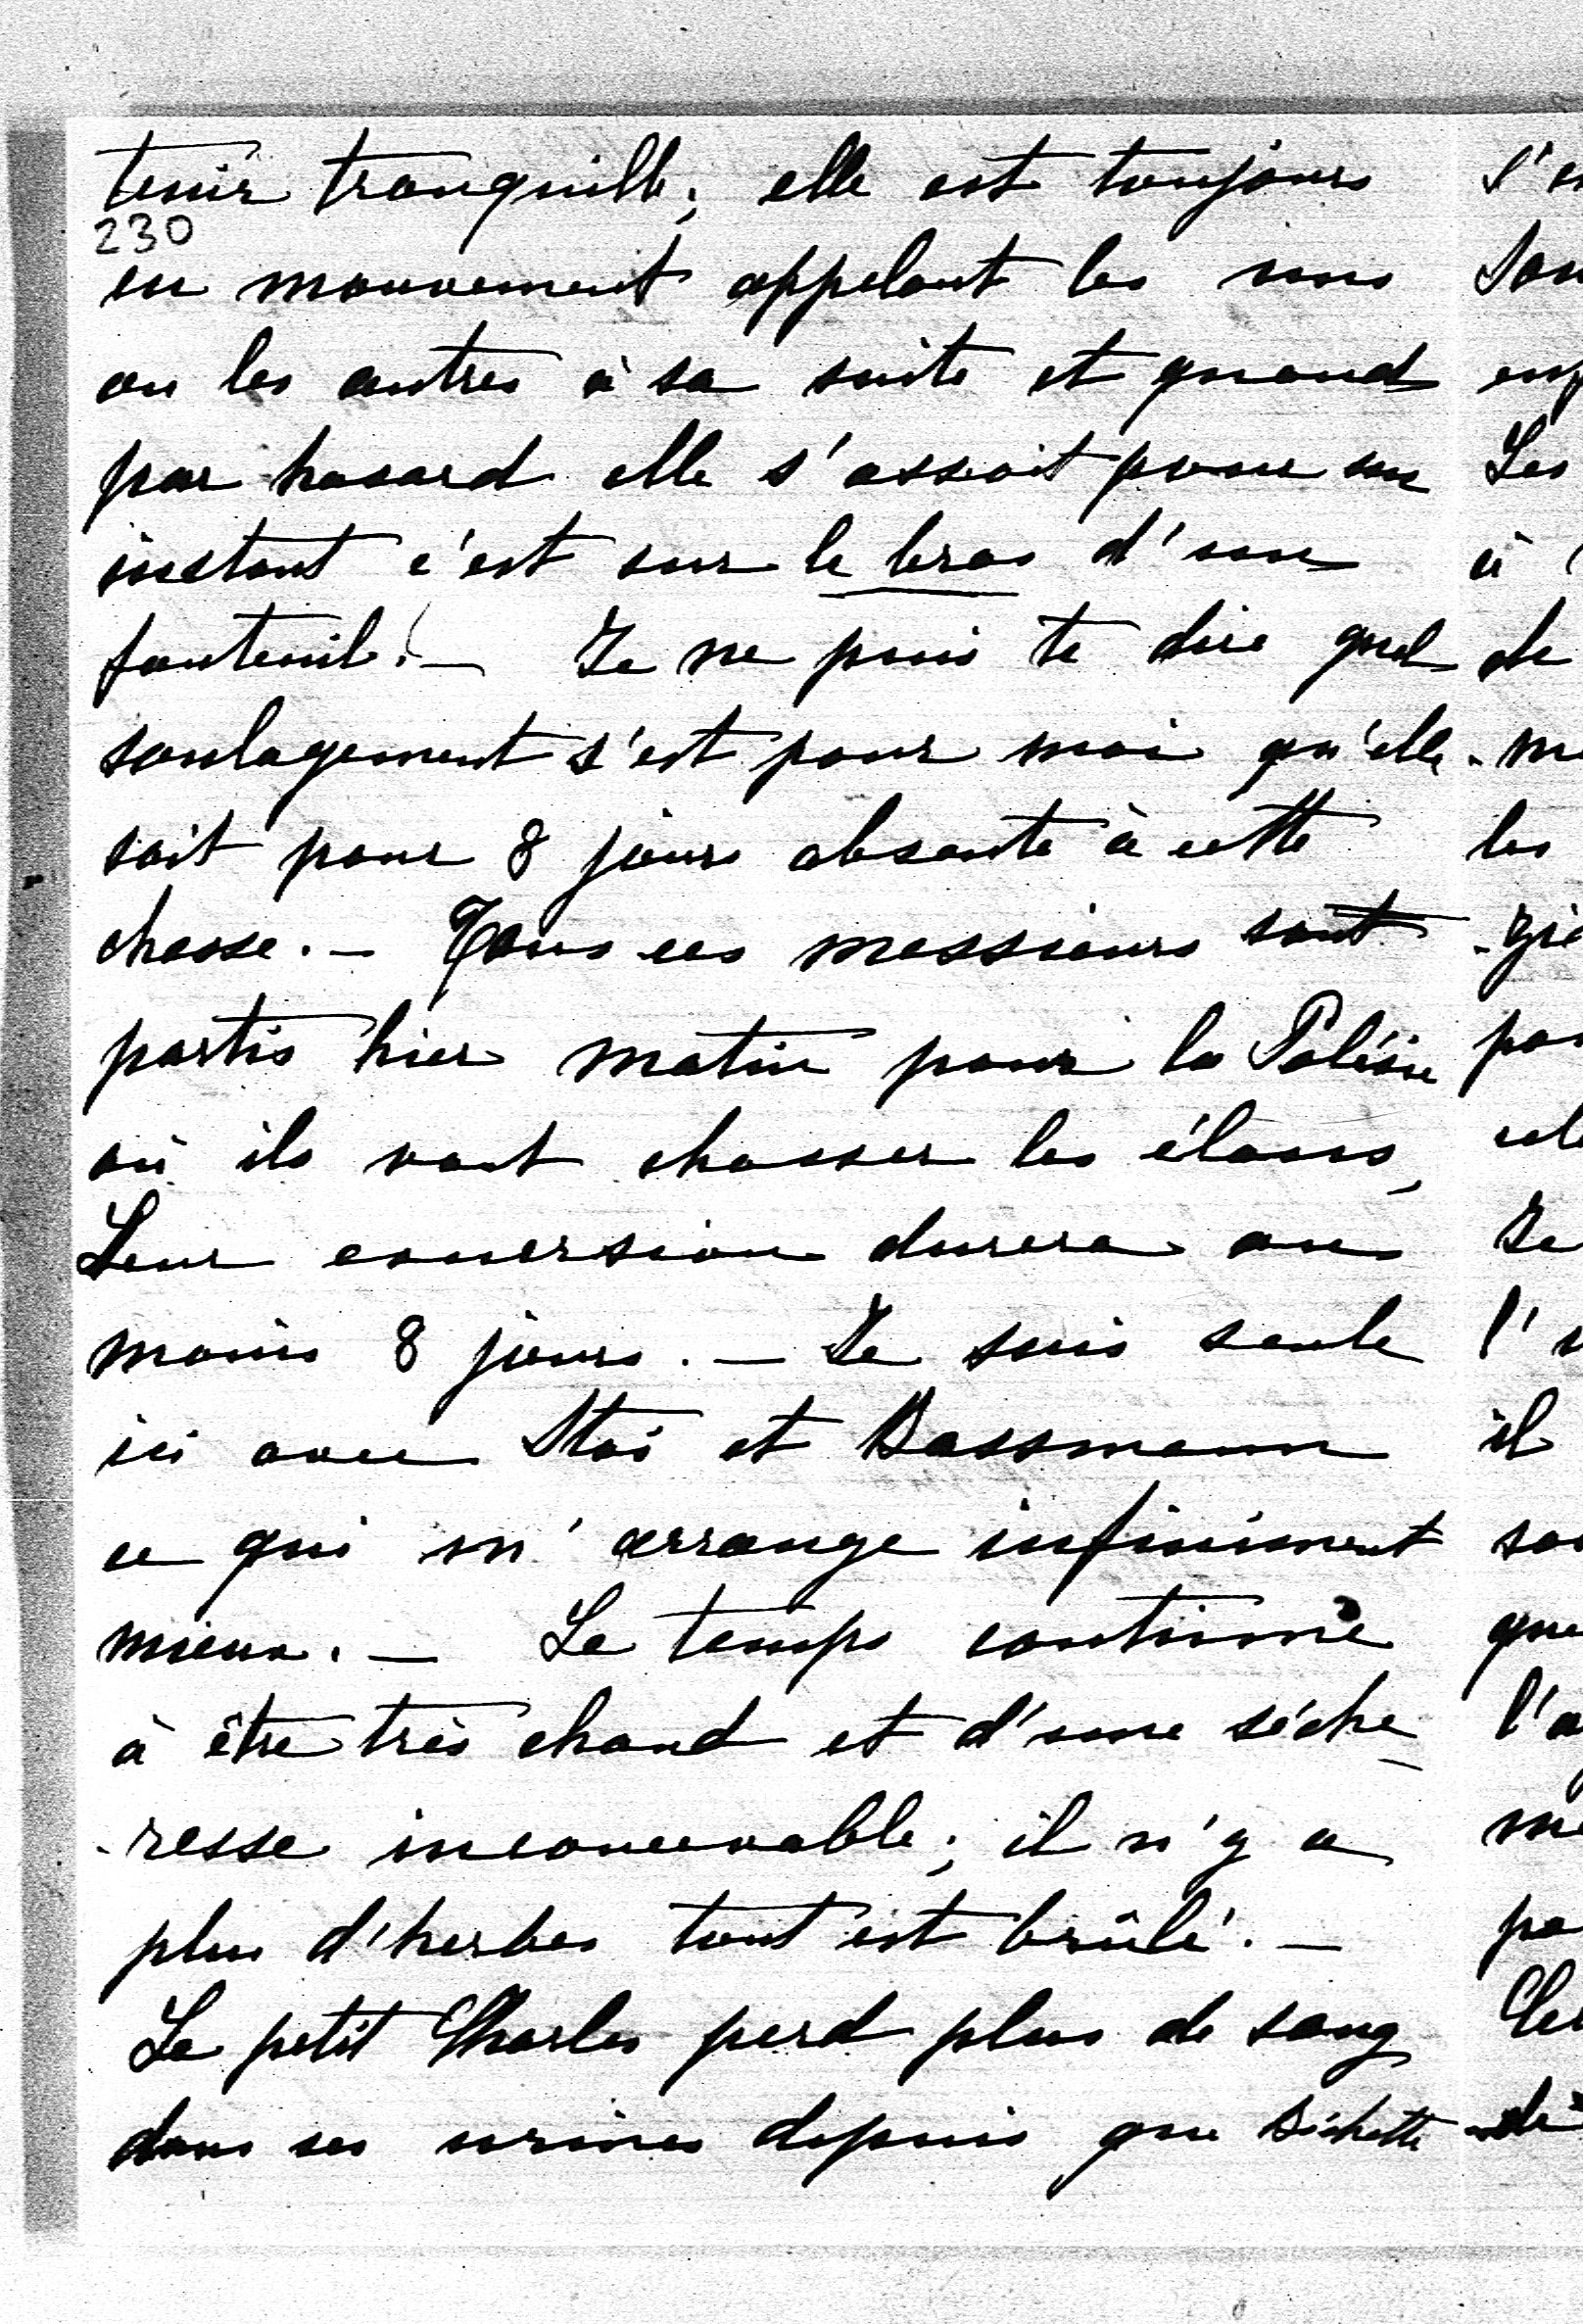 tenir tranquille; elle est toujours
230
en mouvement appelant les uns
ou les autres à sa suite et quand
par hasard elle s'assoit pour un
instant c'est sur le bras d'un
fauteuil! — Je ne puis te dire quel
soulagement s'est pour moi qu'elle
soit pour 8 jours absente à cette
chasse. — Tous ces messieurs sont
partis hier matin pour la Polésie
où ils vont chasser les élans,
Leur excursion durera au
moins 8 jours. — Je suis seule
ici avec Stas et Bassmann
ce qui m'arrange infiniment
mieux. — Le temps continue
à être très chaud et d'une séche
-resse inconcevable; il n'y a
plus d'herbes tout est brûlé. —
Le petit Charles perd plus de sang
dans ses urines depuis que Bichette